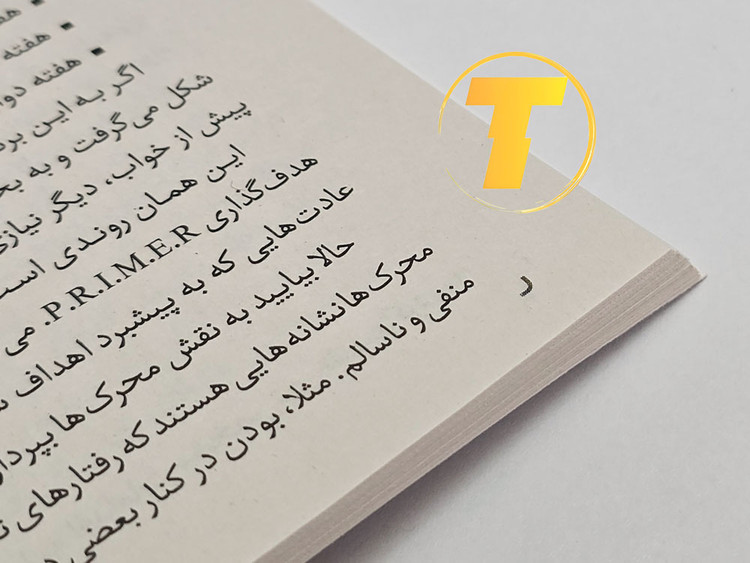 هفته
هفته
هفته
اگر به این
شکل می‌گرفت و به
پیش از خواب، دیگر
این همان روندی است
هدف‌گذاری P.R.I.M.E.R. می
عادت‌هایی که به پیشبرد اهداف
حالا بیایید به نقش محرک‌ها
محرک‌ها نشانه‌هایی هستند که رفتارهای
منفی و ناسالم. مثلا، بودن در کنار بعضی
T